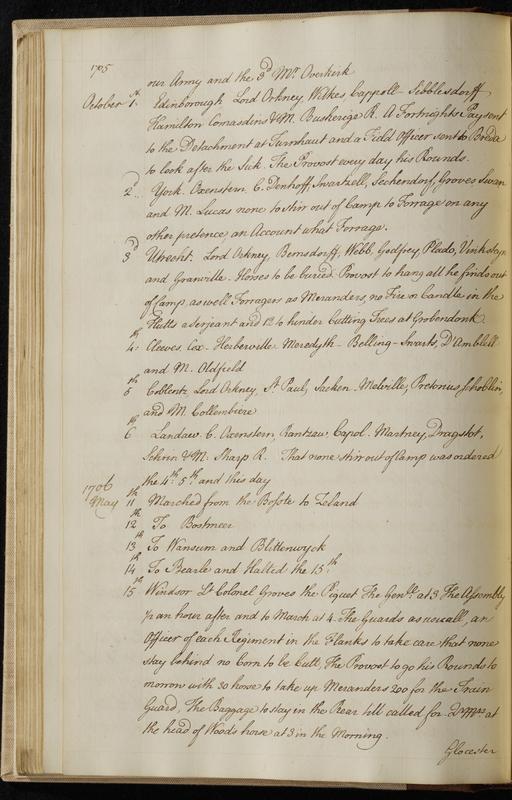 1705
our Army and the 3d Mr. Overkirk
October 1st. Edinborough Lord Orkney, Wilkes, Cappoll- Sebblesdorff
Hamilton Comasdins & M. Buskerige R. A Fortnights Pay sent
to the Detachment at Turnhaut and a Field Officer sent to Breda
to look after the Sick. The Provost every day his Rounds.
2d.. York. Oxenstern. C. Denhoff, Swartzell, Seckendorf, Groves Swan
and M. Lucas none to stirr out of Camp to Forrage on any
other pretence, an Account what Forrage.
3d Utrecht. Lord Orkney, Bernsdorff, Webb, Godfrey, Plado,
and Granville. Horses to be buried Provost to hang all he finds out
of Camp, as well Forragers as Meranders, no Fire or Candle in the
Hutts a Serjeant and 12 to hinder Cutting Trees at Grobendonk.
4th. Cleeves, Cox- Herberville- Meredyth- Belling- Swarts, D'Ambull
and M. Oldfield
5th Coblentz Lord Orkney, St Paul, Sacken- Melville, Pretorius
and M. Collembiere
6th Landaw. C. Oxenstern, Rantzaw, Capol- Martney, Dragstot,
& M. Sharp R. That none stirr out of Camp was ordered
the 4th. 5th and this day
1706
May 11th Marched from the Bosste to Zeland
12th To Bostmeer
13th To Wansum and Blittenwyck
14th To Bearle and Halted the 15th.
15th Windsor Lt Colonel Groves the Piquet The Genll. at 3 The Assembly
1/2 an hour after and to March at 4. The Guards as usuall, an
Officer of each Regiment in the Flanks to take care that none
stay behind no Corn to be Cutt, The Provost to go his Rounds to
morrow with 30 horse to take up Meranders 200 for the Train
Guard, The Baggage to stay in the Rear till called for. Q Mrs. at
the head of Woods horse at 3 in the Morning.
Glocester